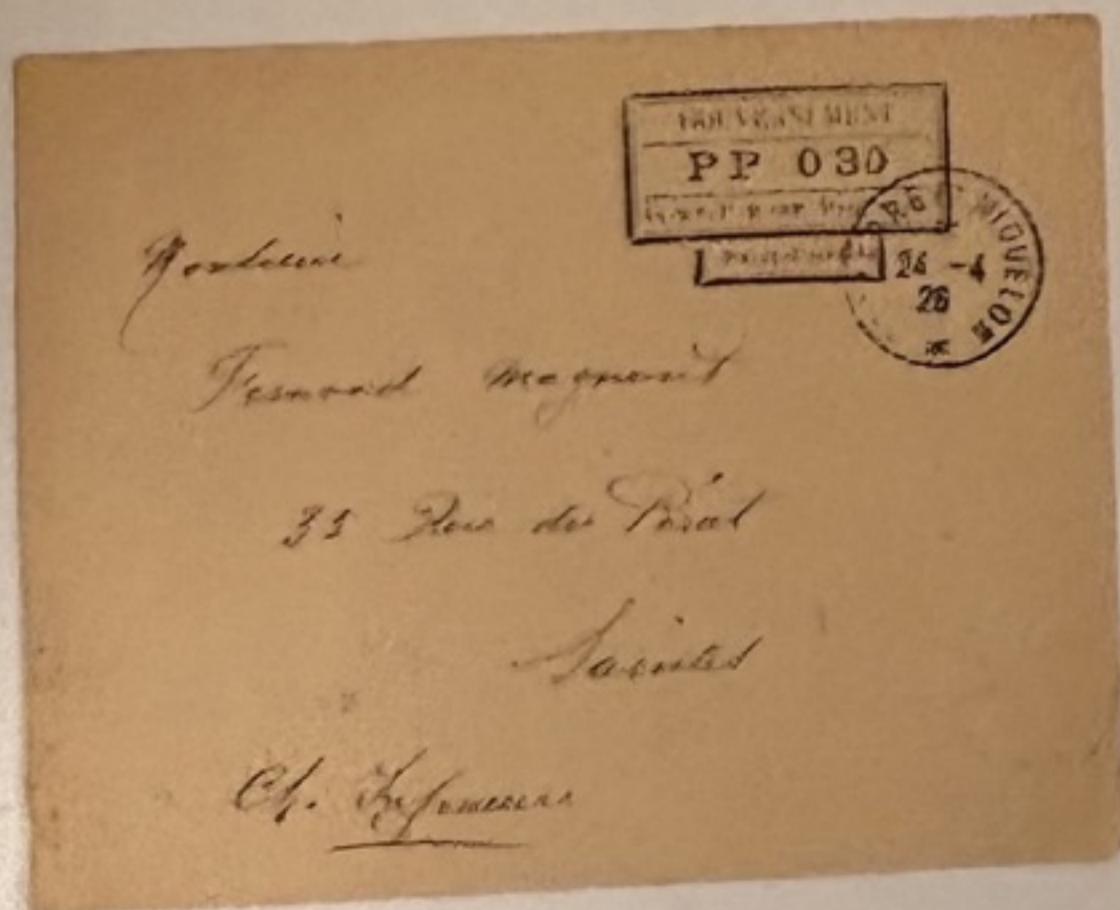 GOUVERNEMENT
PP 030
PIERRE ET MIQUELON
24 -4
26
Monsieur
Fernand Magnant
35 Rue du Pérat
Saintes
Ch. Inférieure